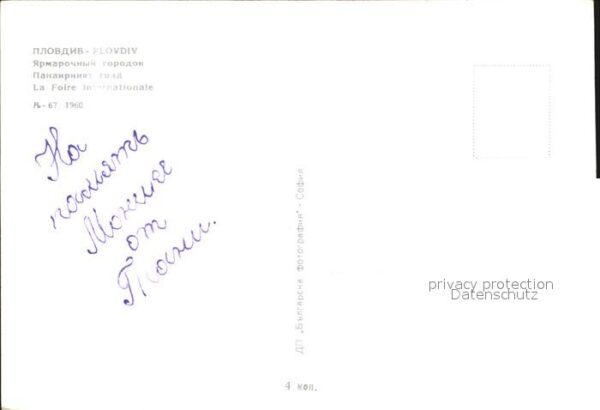 ПЛОВДИВ - PLOVDIV
Ярмарочный городок
Панаирният град
La Foire Internationale
№ - 67 1960
На
память
Монике
от
Тани.
ДП „Българска фотография" - София
privacy protection
Datenschutz
4 коп.